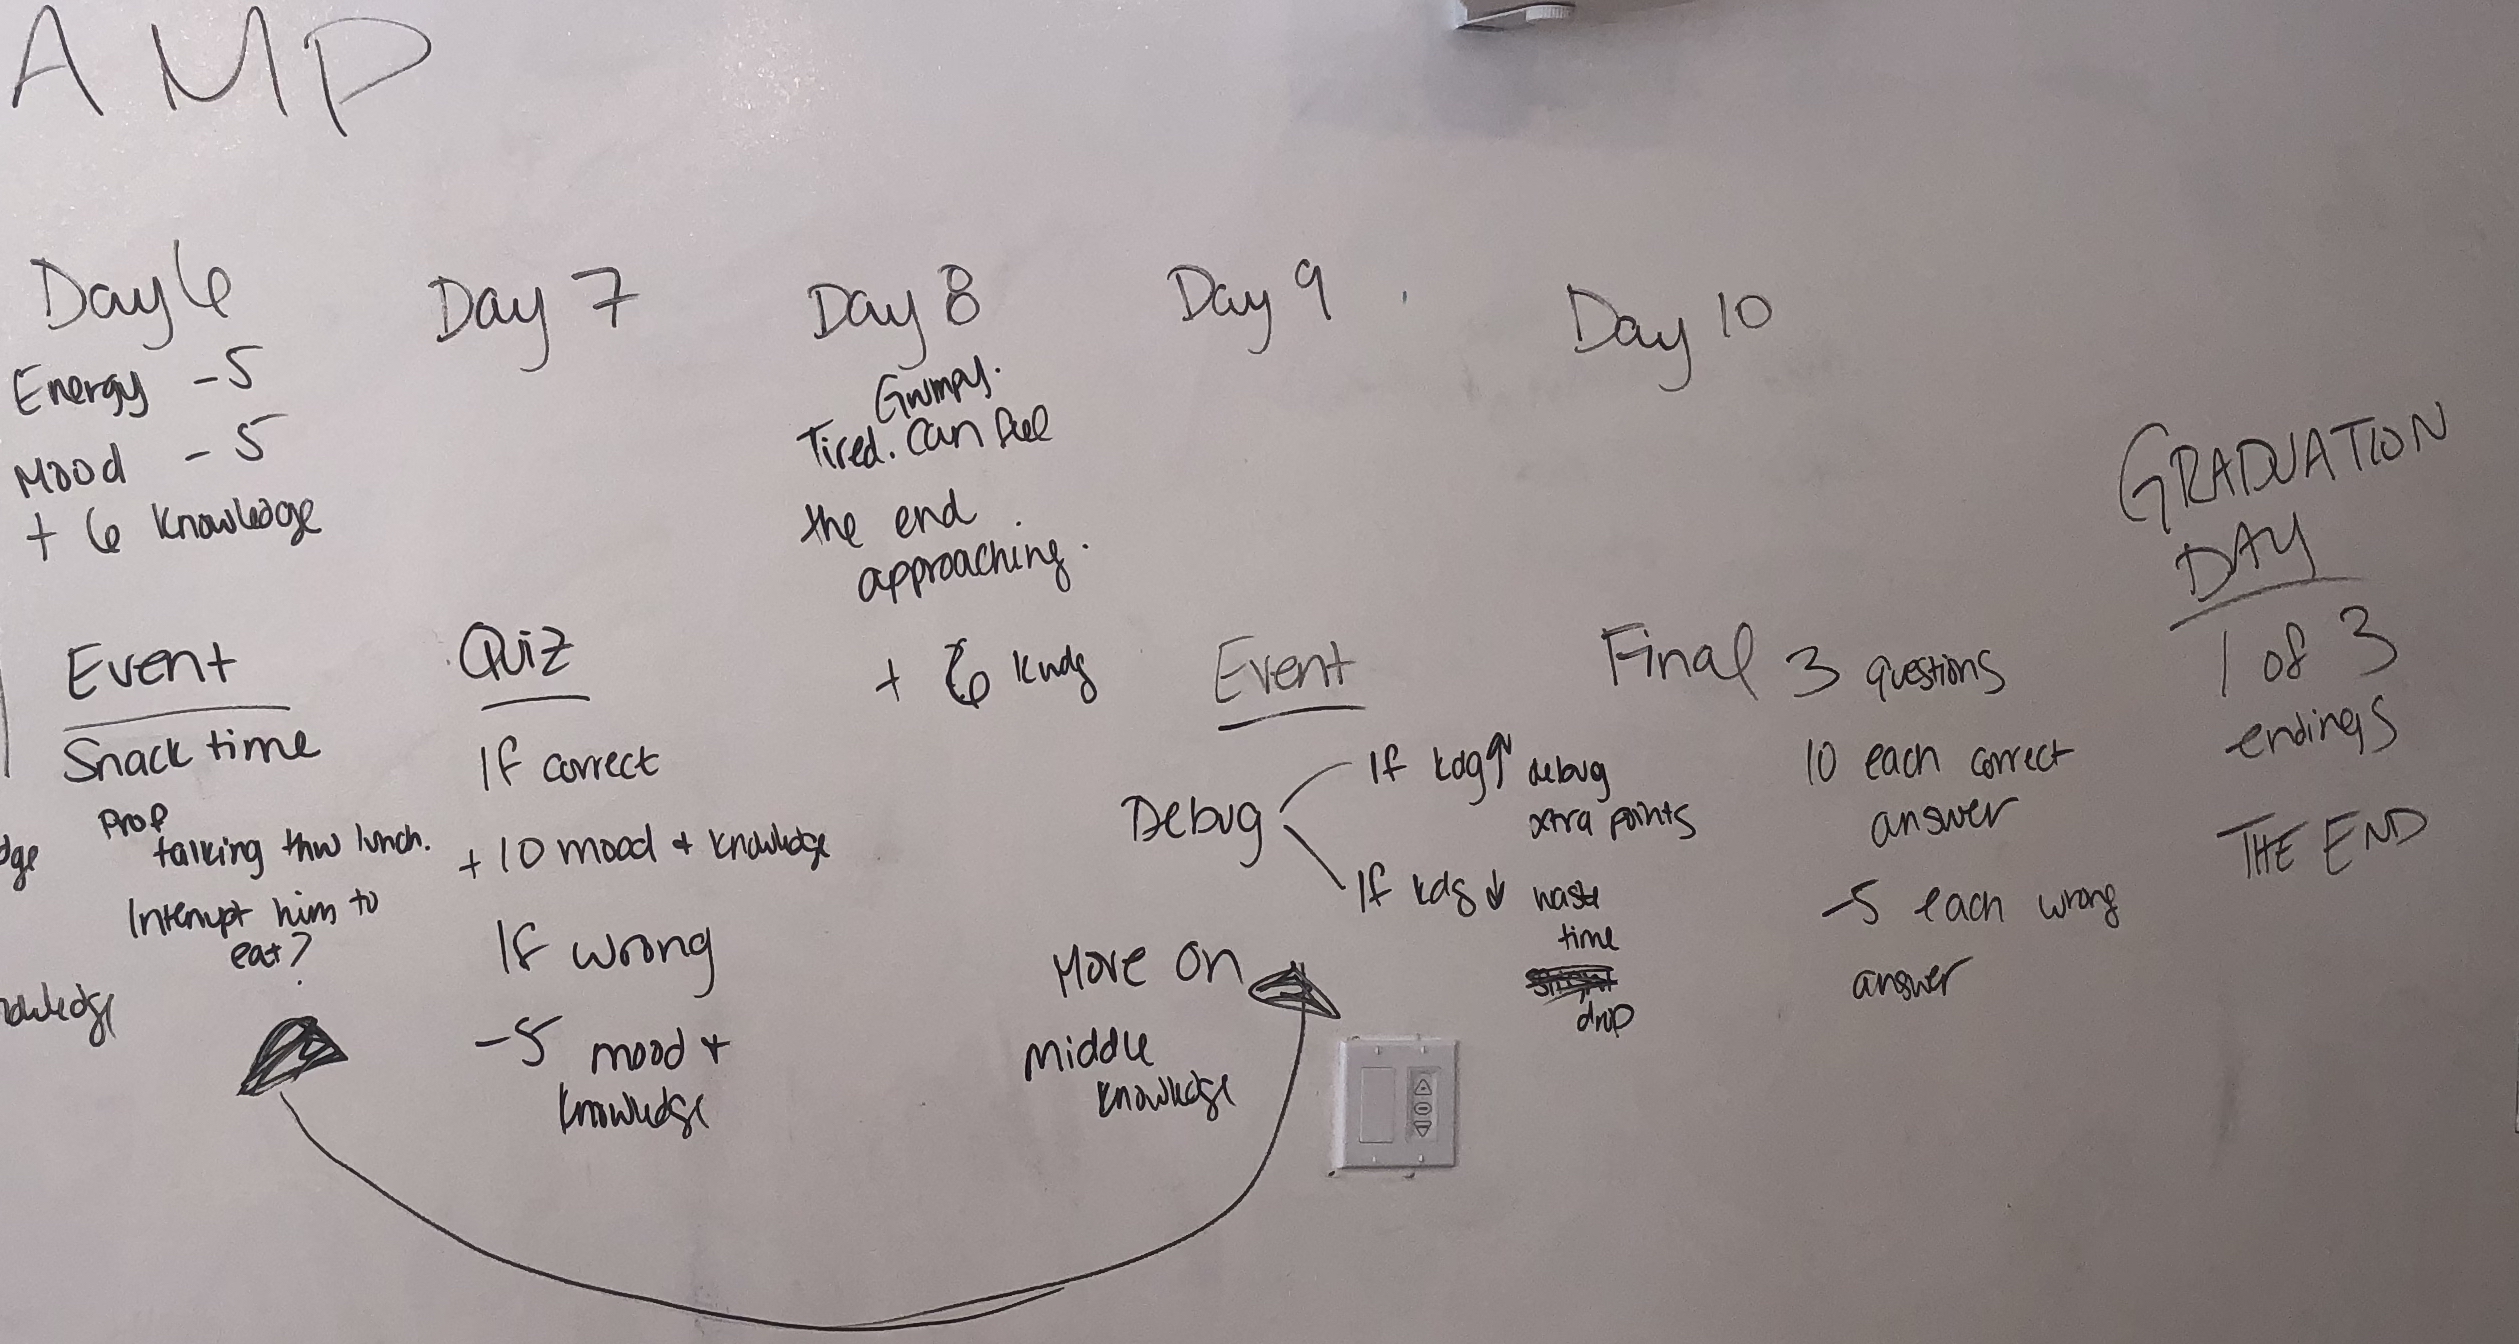 AMP
Day 6
Energy -5
Mood -5
+ 6 knowledge
Event
Snack time
Prof
talking thru lunch.
Interrupt him to
eat?
dge
owledge
Day 7
Quiz
If correct
+10 mood + knowledge
If wrong
-5 mood +
knowledge
Day 8
Grumpy.
Tired. Can feel
the end
approaching.
+ 6 kndg
Day 9
Event
Debug
If kdg↑ debug
xtra points
If kdg ↓ waste
time
drop
Move on
Middle
knowledge
Day 10
Final 3 questions
10 each correct
answer
-5 each wrong
answer
GRADUATION
DAY
1 of 3
endings
THE END